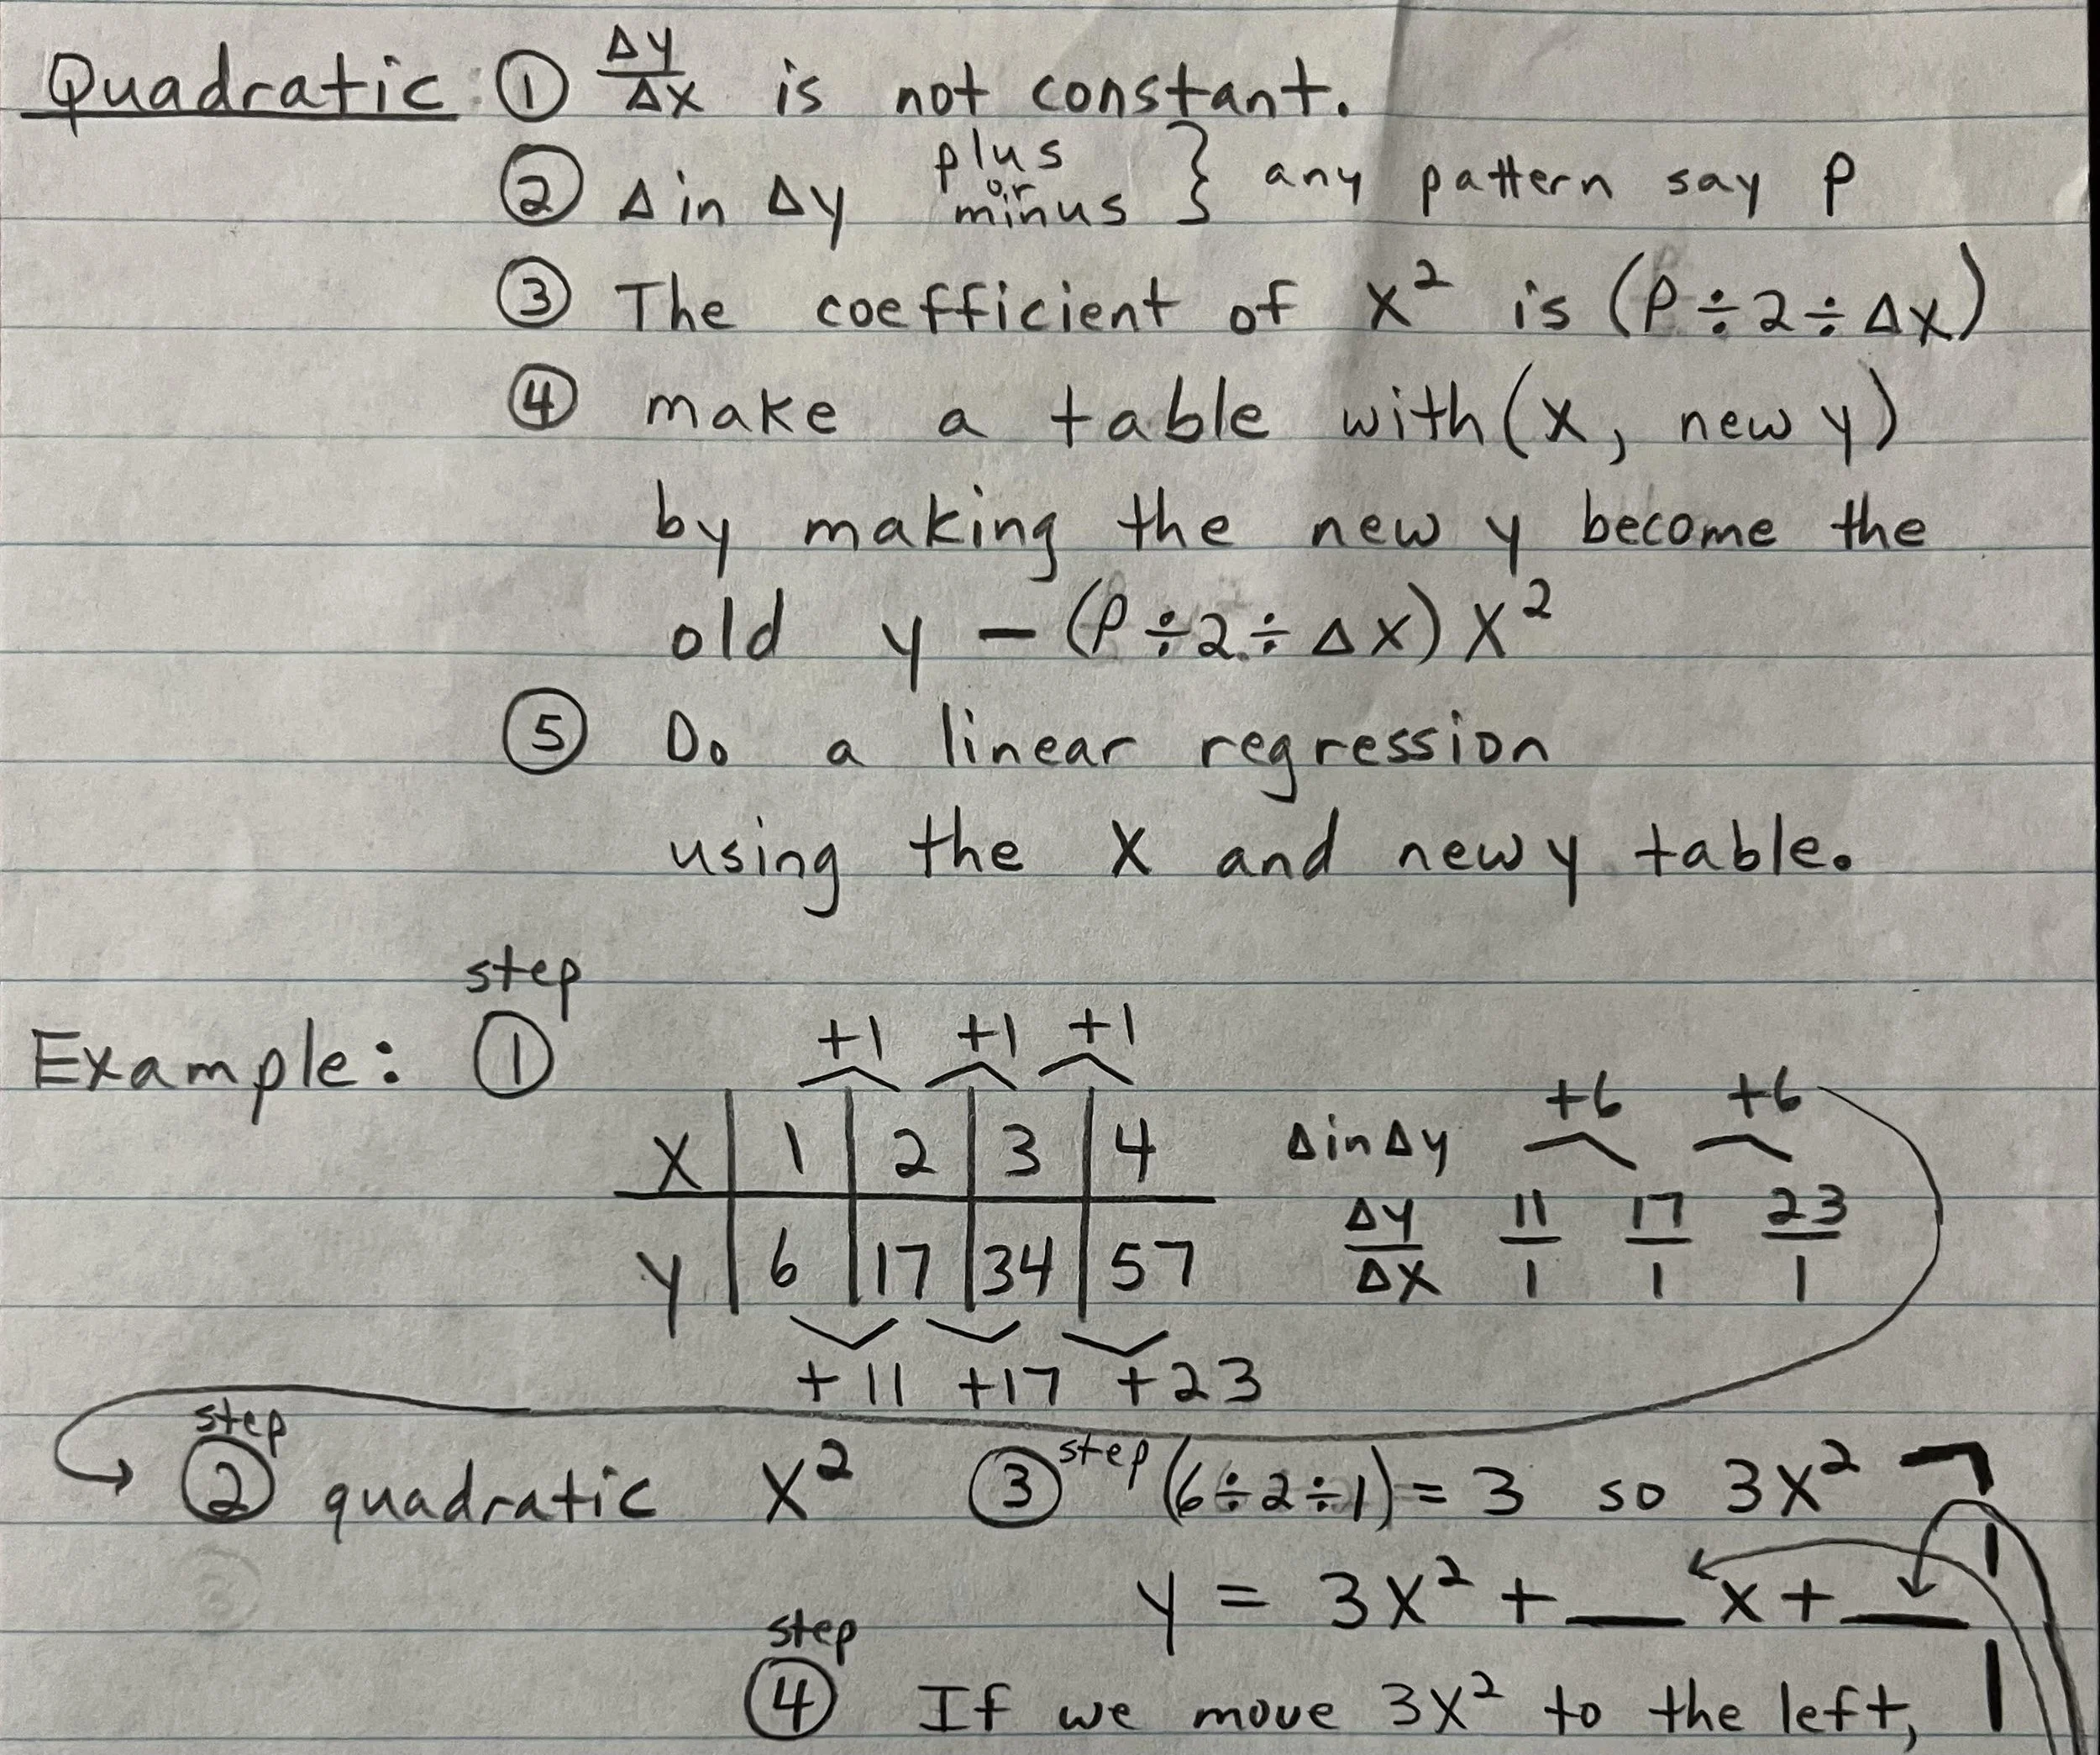 Quadratic: ① Δy/Δx is not constant.
② Δ in Δy plus or minus } any pattern say P
③ The coefficient of x² is (P÷2÷Δx)
④ make a table with (x, new y)
by making the new y become the
old y − (P÷2÷Δx)x²
⑤ Do a linear regression
using the x and new y table.
Example: step ①
+1 +1 +1
x | 1 | 2 | 3 | 4
y | 6 | 17 | 34 | 57
+11 +17 +23
+6 +6
Δ in Δy
Δy/Δx 11/1 17/1 23/1
step ② quadratic x² ③ step (6÷2÷1) = 3 so 3x²
y = 3x² + __ x + __
step ④ If we move 3x² to the left,